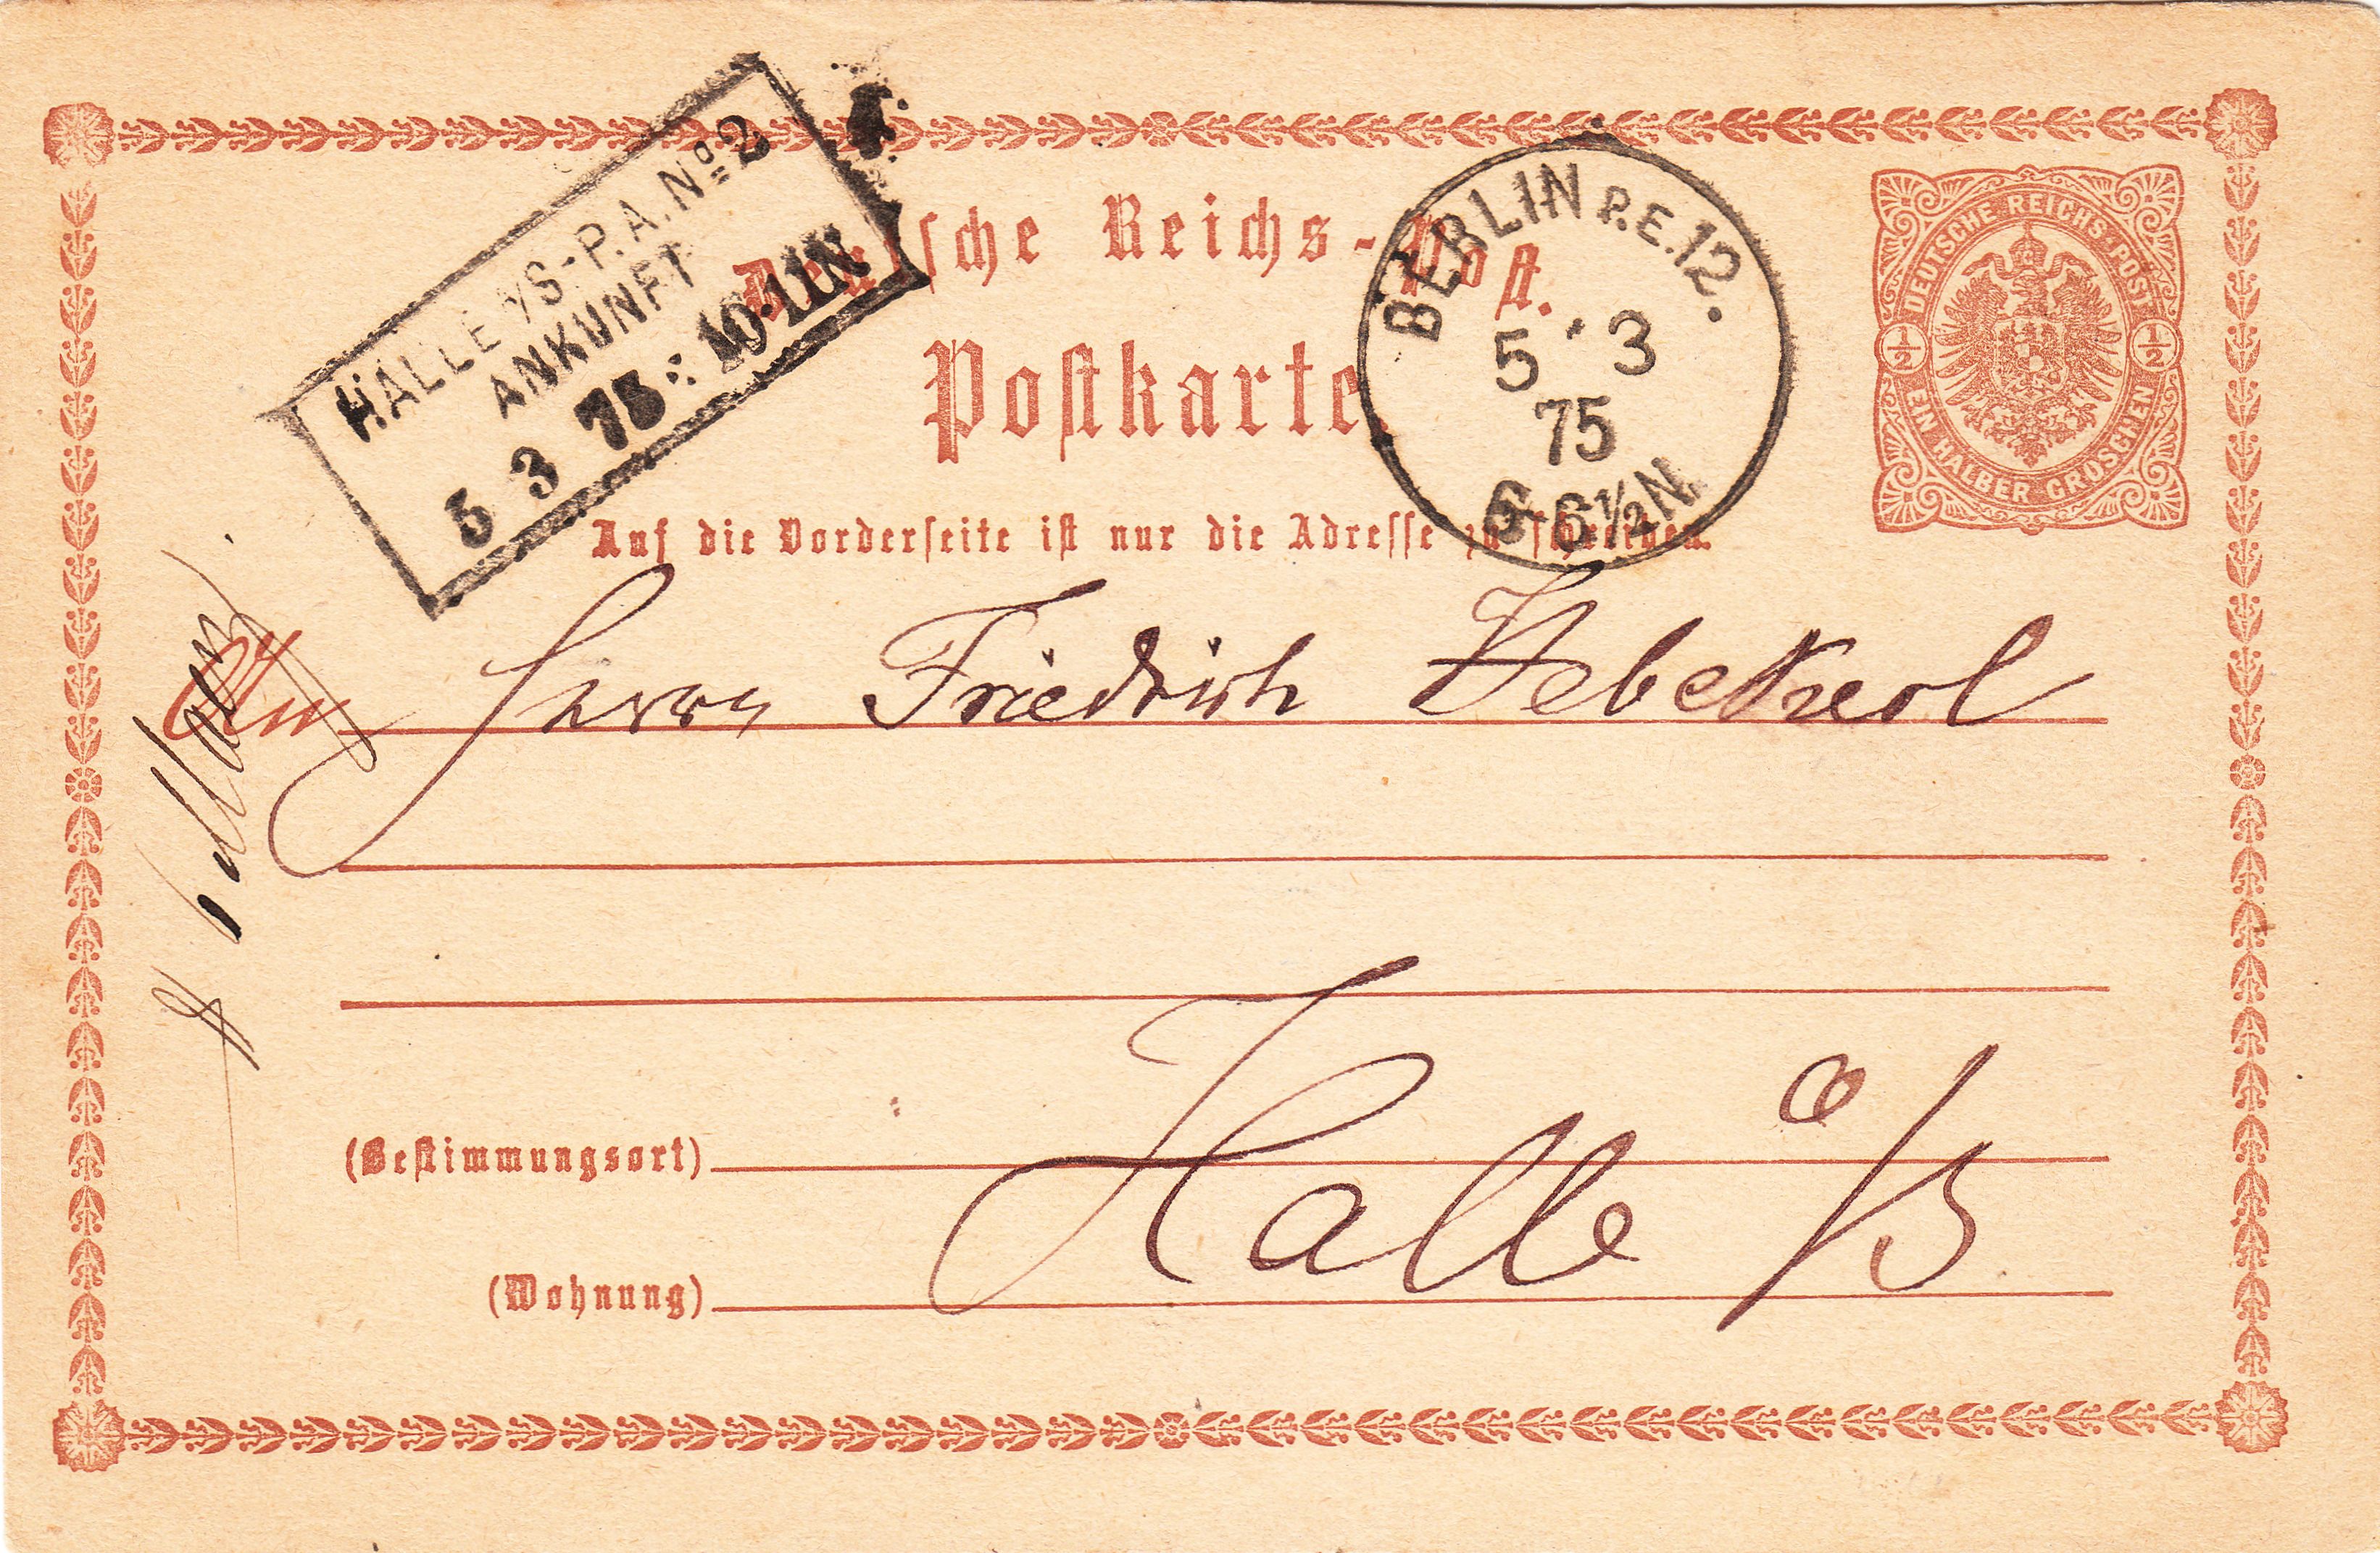 HALLE a/S-P.A.No 2
ANKUNFT
5 3 75 : 10-11N
Deutsche Reichs-Post.
BERLIN P.E.12.
5 3
75
6-6½N
DEUTSCHE REICHS-POST
½ ½
EIN HALBER GROSCHEN
Postkarte
Auf die Vorderseite ist nur die Adresse zu schreiben.
An Herrn Friedrich
(Bestimmungsort) Halle a/S
(Wohnung)